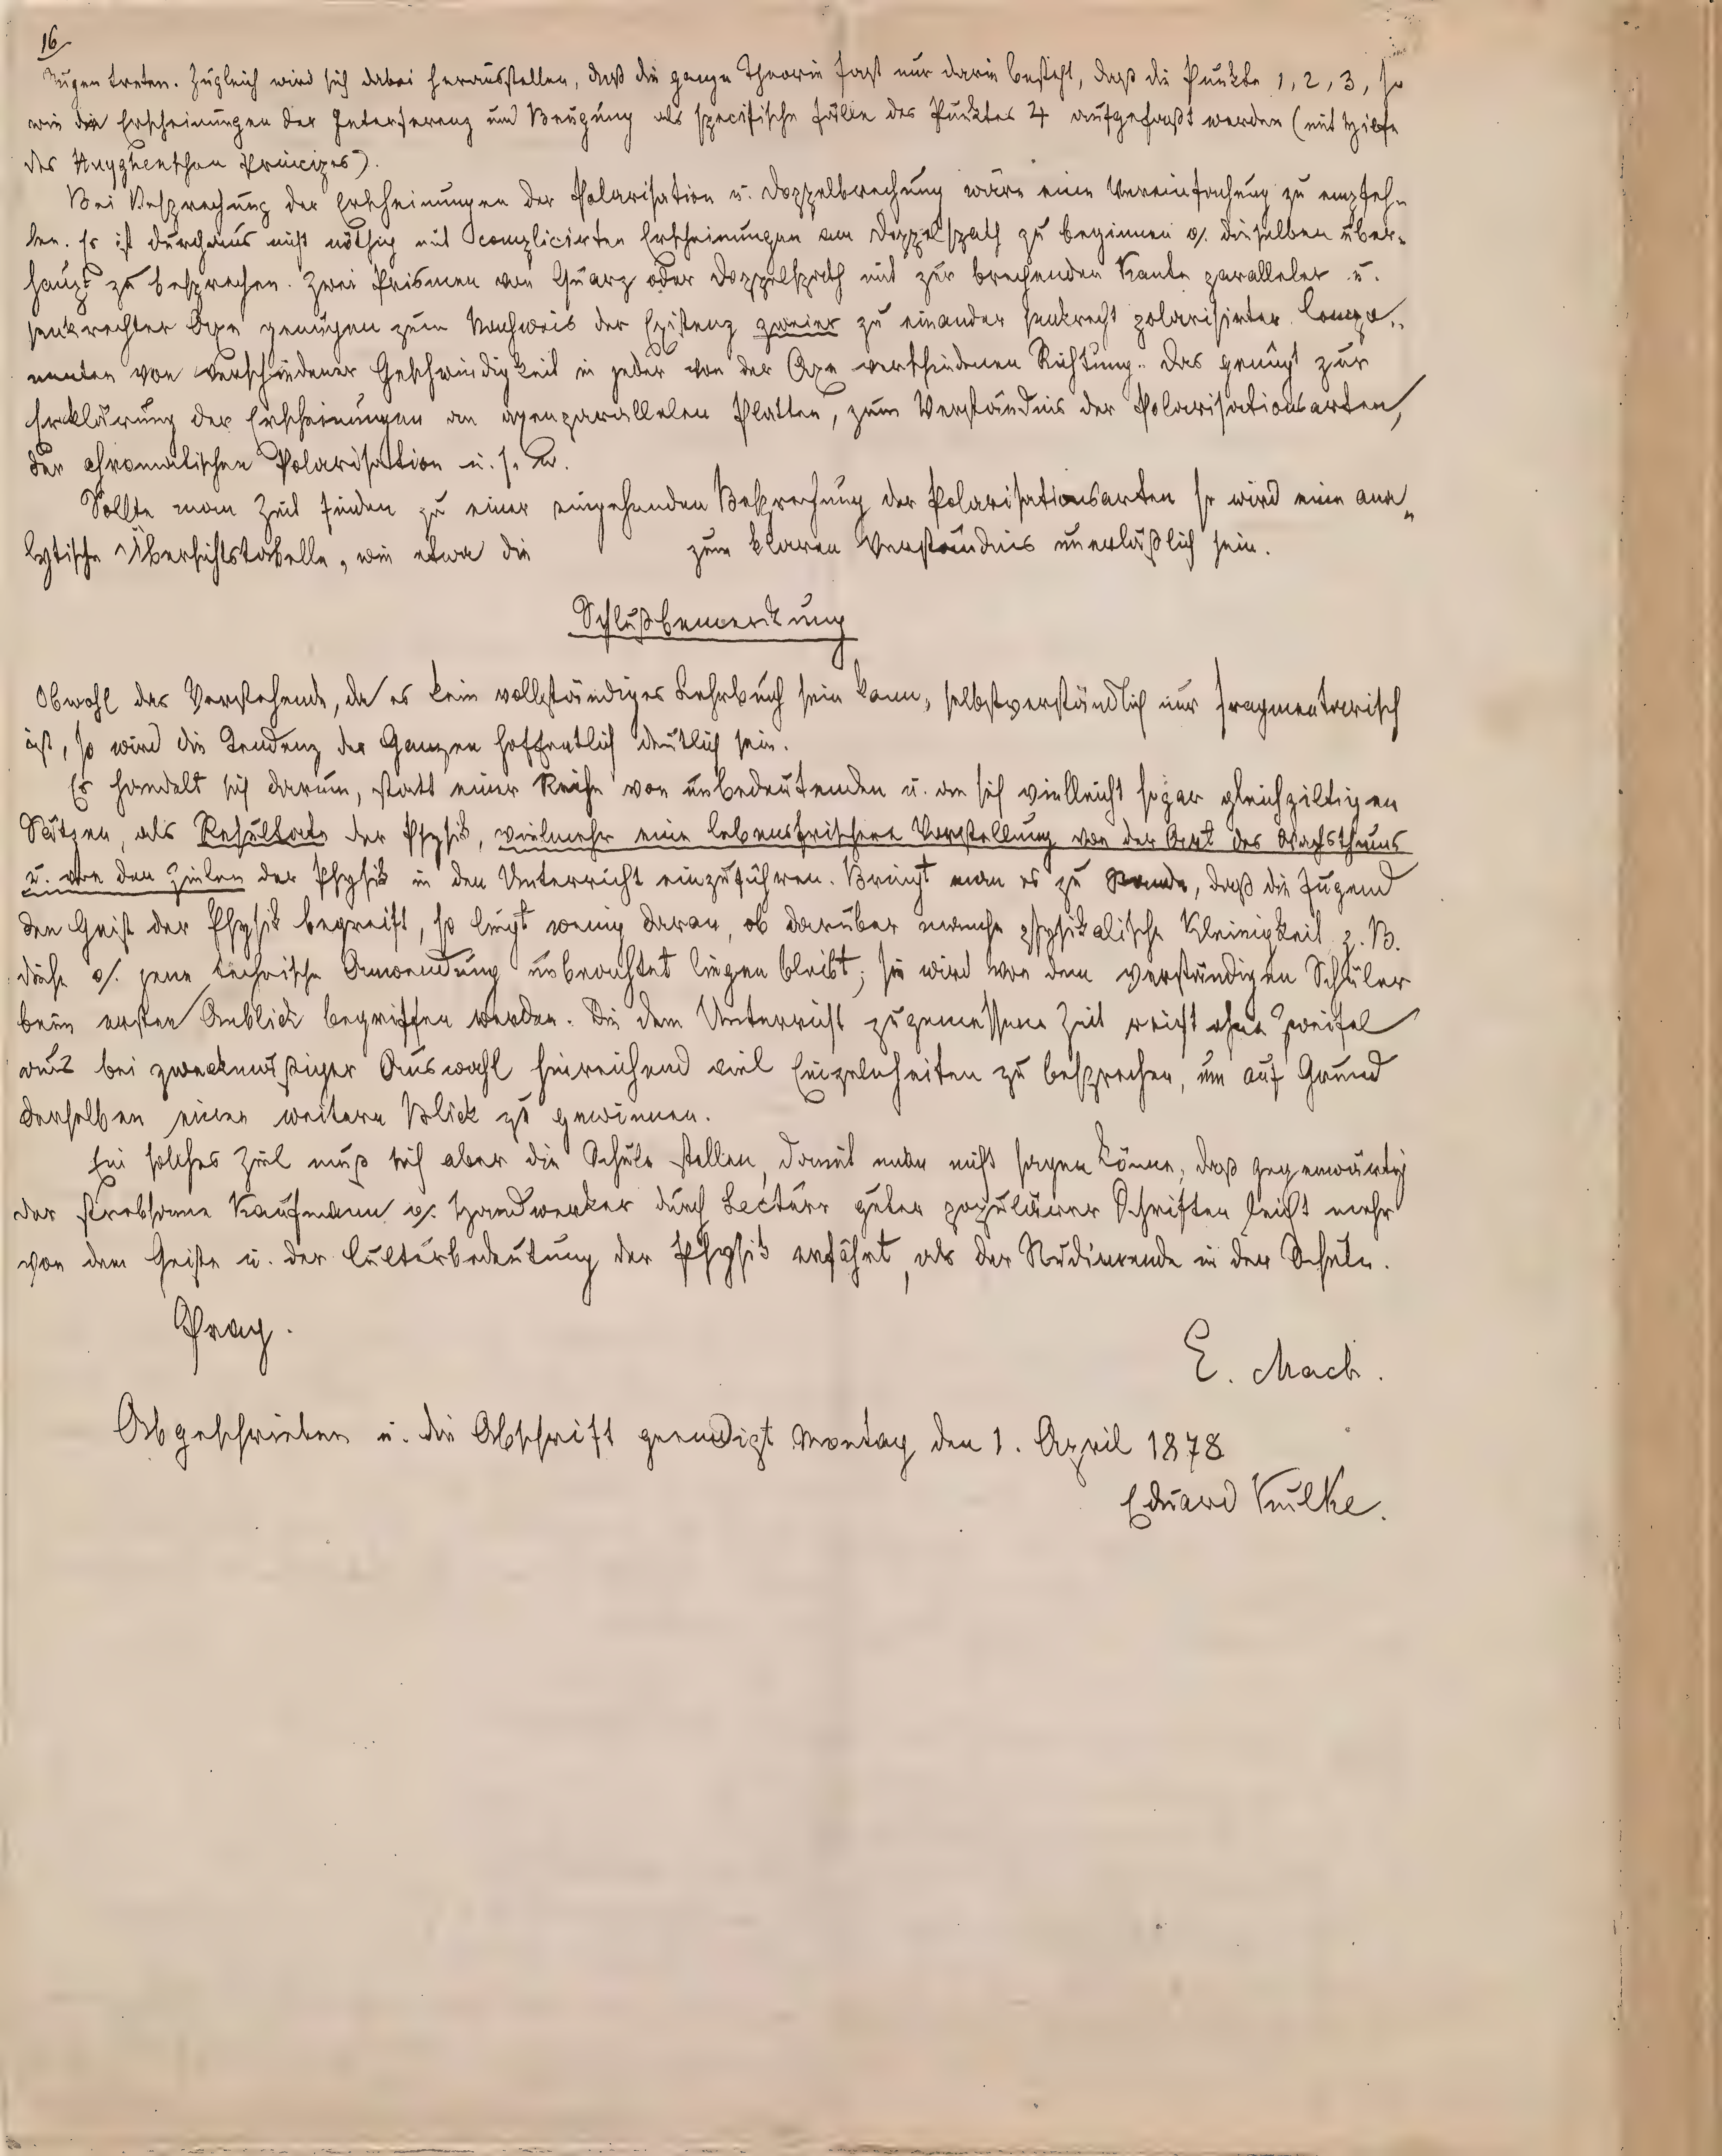 16
Augen treten. Zugleich wird sich dabei herausstellen, daß die ganze Theorie fast nur darin besteht, daß die Punkte 1, 2, 3, so
wie die Erscheinungen der Interferenz und Beugung als specifische Fälle des Punktes 4 aufgefaßt werden (mit Hilfe
des Huyghenschen Principes).
Bei Besprechung der Erscheinungen der Polarisation u. Doppelbrechung wäre eine Vereinfachung zu empfeh-
len. Es ist durchaus nicht nöthig mit complicirten Erscheinungen am Doppelspath zu beginnen o/. dieselben über-
haupt zu besprechen. Zwei Prismen von Quarz oder Doppelspath mit zur brechenden Kante paralleler u.
senkrechter Axe genügen zum Nachweis der Existenz zweier zu einander senkrecht polarisirter Compo-
nenten von verschiedener Geschwindigkeit in jeder von der Axe verschiedenen Richtung. Das genügt zur
Erklärung der Erscheinungen an axenparallelen Platten, zum Verständnis der Polarisationsarten,
der chromatischen Polarisation u. s. w.
Sollte man Zeit finden zu einer eingehenden Besprechung der Polarisationsarten so wird eine ana-
lytische Übersichtstabelle, wie etwa die zum klaren Verständnis unerläßlich sein.
Schlußbemerkung
Obwohl das Vorstehende, da es kein vollständiges Lehrbuch sein kann, selbstverständlich nur fragmentarisch
ist, so wird die Tendenz des Ganzen hoffentlich deutlich sein.
Es handelt sich darum, statt einer Reihe von unbedeutenden u. an sich vielleicht sogar gleichgiltigen
Sätzen, als Resultate der Physik, vielmehr eine lebensfrischere Vorstellung von der Art des Wachsthums
u. von den Zielen der Physik in den Unterricht einzuführen. Bringt man es zu Stande, daß die Jugend
den Geist der Physik begreift, so liegt wenig daran, ob darüber manche physikalische Kleinigkeit z. B.
diese o/. jene technische Anwendung unbeachtet liegen bleibt; sie wird von dem verständigen Schüler
beim ersten Anblick begriffen werden. Die dem Unterricht zugemessene Zeit reicht ohne Zweifel
aus bei zweckmäßiger Auswahl hinreichend viel Einzelnheiten zu besprechen, um auf Grund
derselben einen weitern Blick zu gewinnen.
Ein solches Ziel muß sich aber die Schule stellen, damit man nicht sagen könne, daß gegenwärtig
der strebsame Kaufmann o/. Handwerker durch Lecture guter populärer Schriften leicht mehr
von dem Geiste u. der Culturbedeutung der Physik erfährt, als der Studierende in der Schule.
Prag.
E. Mach.
Abgeschrieben u. die Abschrift geendigt Montag den 1. April 1878
Eduard Kulke.